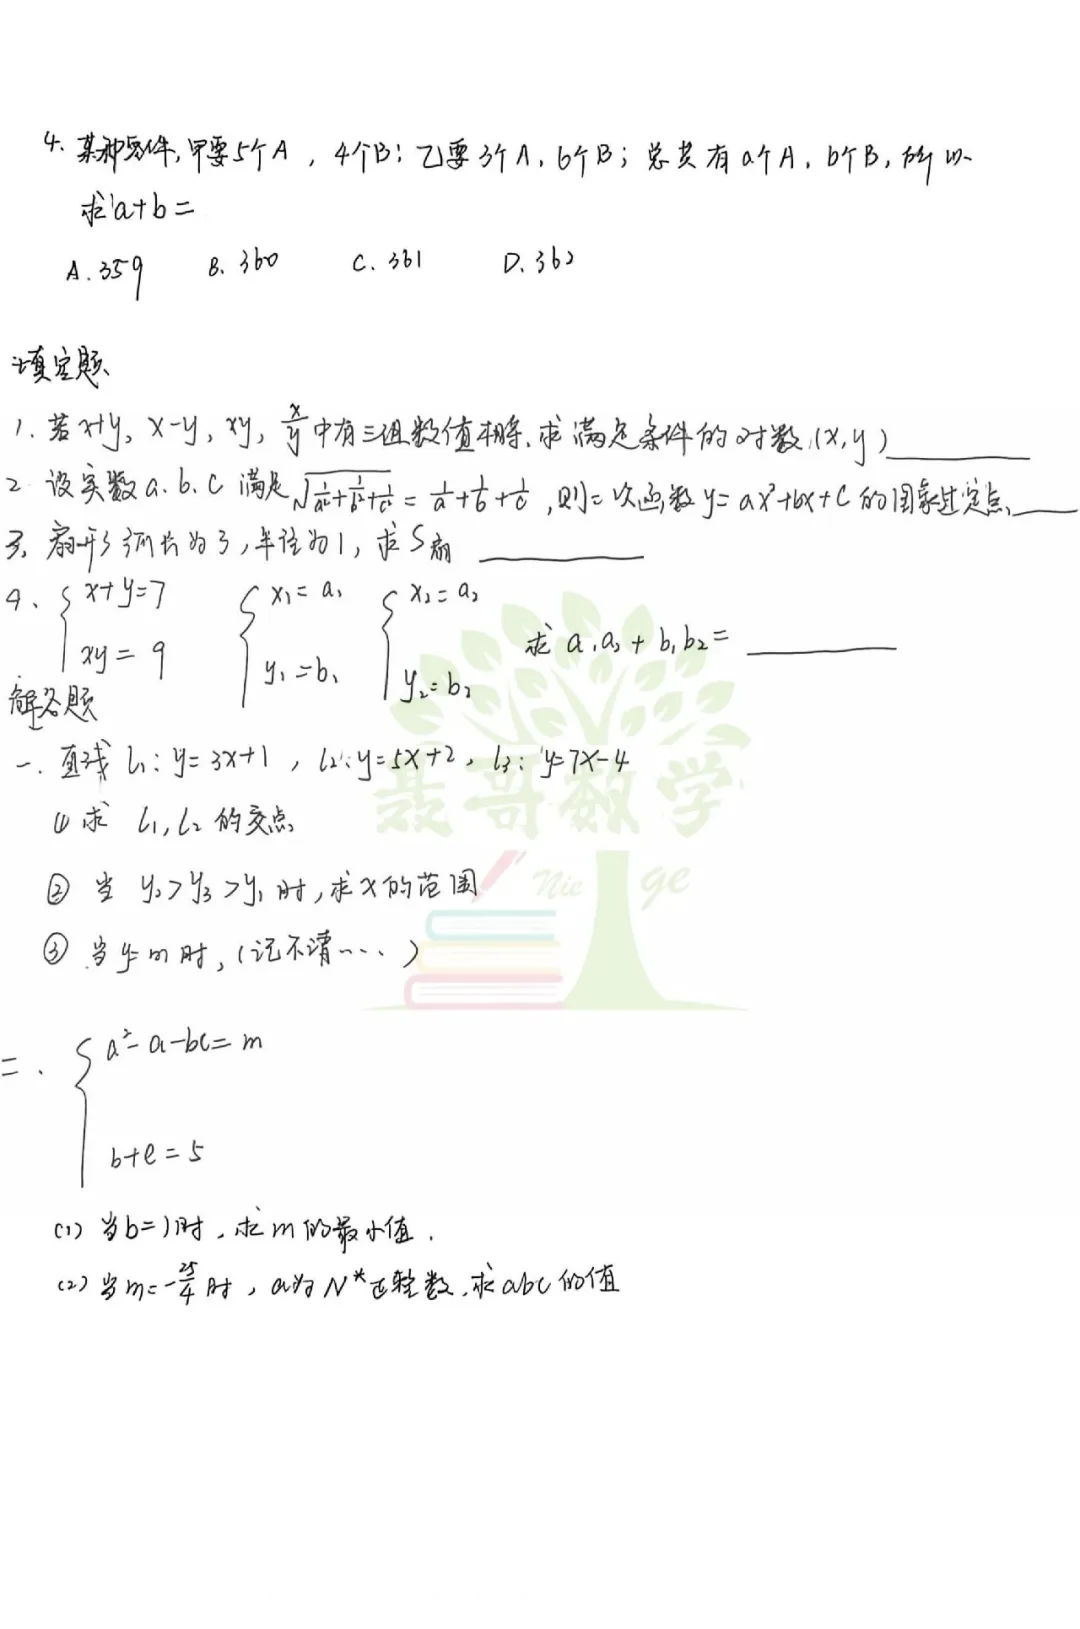 4. 某种零件,甲要5个A,4个B;乙要3个A,6个B;总共有a个A,b个B,所以
求a+b=
A.359 B.360 C.361 D.362
填空题
1.若x+y,x-y,xy,x/y中有三组数值相等.求满足条件的对数(x,y)______
2.设实数a.b.c满足√(1/a²+1/b²+1/c²)=1/a+1/b+1/c,则二次函数y=ax²+bx+c的图象过定点____
3.扇形弧长为3,半径为1,求S扇______
4、{x+y=7 xy=9 {x₁=a₁ y₁=b₁ {x₂=a₂ y₂=b₂ 求a₁a₂+b₁b₂=______
解答题
一.直线l₁:y=3x+1,l₂:y=5x+2,l₃:y=7x-4
① 求l₁,l₂的交点
② 当y₂>y₃>y₁时,求x的范围
③ 当y=m时,(记不清....)
聂哥数学
Nie ge
二.{a²-a-bc=m
b+c=5
(1)当b=1时,求m的最小值.
(2)当m=-25/4时,a为N*正整数.求abc的值